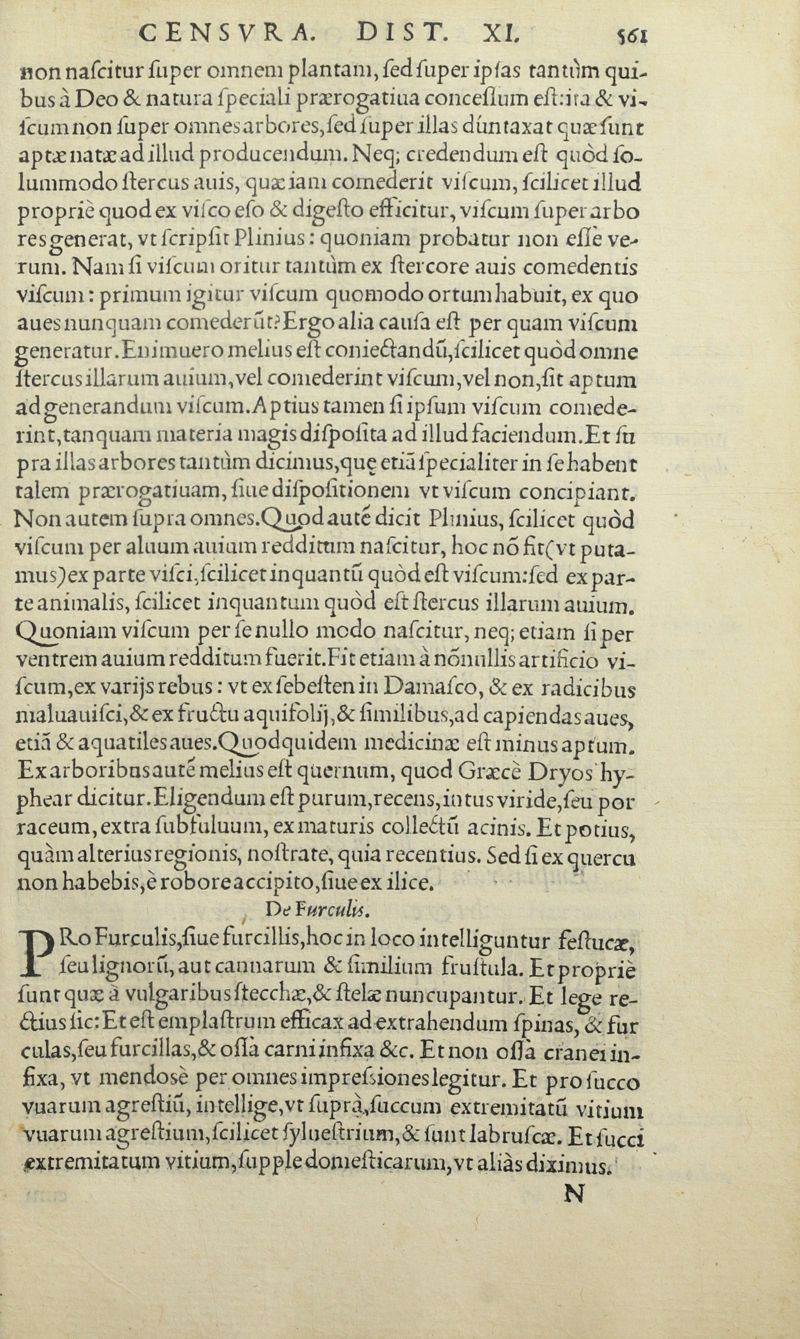 CENSVRA. DIST. XI. 561
non naſcitur ſuper omnem plantam, ſed ſuper ipſas tantùm qui-
bus à Deo & natura ſpeciali prærogatiua conceſſum eſt: ita & vi-
ſcum non ſuper omnes arbores, ſed ſuper illas dũntaxat quæ ſunt
aptæ natæ ad illud producendum. Neq; credendum eſt quòd ſo-
lummodo ſtercus auis, quæ iam comederit viſcum, ſcilicet illud
propriè quod ex viſco eſo & digeſto efficitur, viſcum ſuper arbo
res generat, vt ſcripſit Plinius: quoniam probatur non eſſe ve-
rum. Nam ſi viſcum oritur tantùm ex ſtercore auis comedentis
viſcum: primum igitur viſcum quomodo ortum habuit, ex quo
aues nunquam comederũt? Ergo alia cauſa eſt per quam viſcum
generatur. Enimuero melius eſt coniectandũ, ſcilicet quòd omne
ſtercus illarum auium, vel comederint viſcum, vel non, ſit aptum
ad generandum viſcum. Aptius tamen ſi ipſum viſcum comede-
rint, tanquam materia magis diſpoſita ad illud faciendum. Et ſu
pra illas arbores tantùm dicimus, quę etiã ſpecialiter in ſe habent
talem prærogatiuam, ſiue diſpoſitionem vt viſcum concipiant.
Non autem ſupra omnes. Quod autẽ dicit Plinius, ſcilicet quòd
viſcum per aluum auium redditum naſcitur, hoc nõ fit (vt puta-
mus) ex parte viſci, ſcilicet inquantũ quòd eſt viſcum: ſed ex par-
te animalis, ſcilicet inquantum quòd eſt ſtercus illarum auium.
Quoniam viſcum per ſe nullo modo naſcitur, neq; etiam ſi per
ventrem auium redditum fuerit. Fit etiam à nõnullis artificio vi-
ſcum, ex varijs rebus: vt ex ſebeſten in Damaſco, & ex radicibus
maluauiſci, & ex fructu aquifolij, & ſimilibus, ad capiendas aues,
etiã & aquatiles aues. Quod quidem medicinæ eſt minus aptum.
Ex arboribus autẽ melius eſt quernum, quod Græcè Dryos hy-
phear dicitur. Eligendum eſt purum, recens, intus viride, ſeu por
raceum, extra ſubfuluum, ex maturis collectũ acinis. Et potius,
quàm alterius regionis, noſtrate, quia recentius. Sed ſi ex quercu
non habebis, è robore accipito, ſiue ex ilice.
De Furculis.
PRo Furculis, ſiue furcillis, hoc in loco intelliguntur feſtucæ,
ſeu lignorũ, aut cannarum & ſimilium fruſtula. Et propriè
ſunt quæ à vulgaribus ſtecchæ, & ſtelæ nuncupantur. Et lege re-
ctius ſic: Et eſt emplaſtrum efficax ad extrahendum ſpinas, & fur
culas, ſeu furcillas, & oſſa carni infixa &c. Et non oſſa cranei in-
fixa, vt mendosè per omnes impreſsiones legitur. Et pro ſucco
vuarum agreſtiũ, intellige, vt ſuprà, ſuccum extremitatũ vitium
vuarum agreſtium, ſcilicet ſylueſtrium, & ſunt labruſcæ. Et ſucci
extremitatum vitium, ſupple domeſticarum, vt aliàs diximus.
N